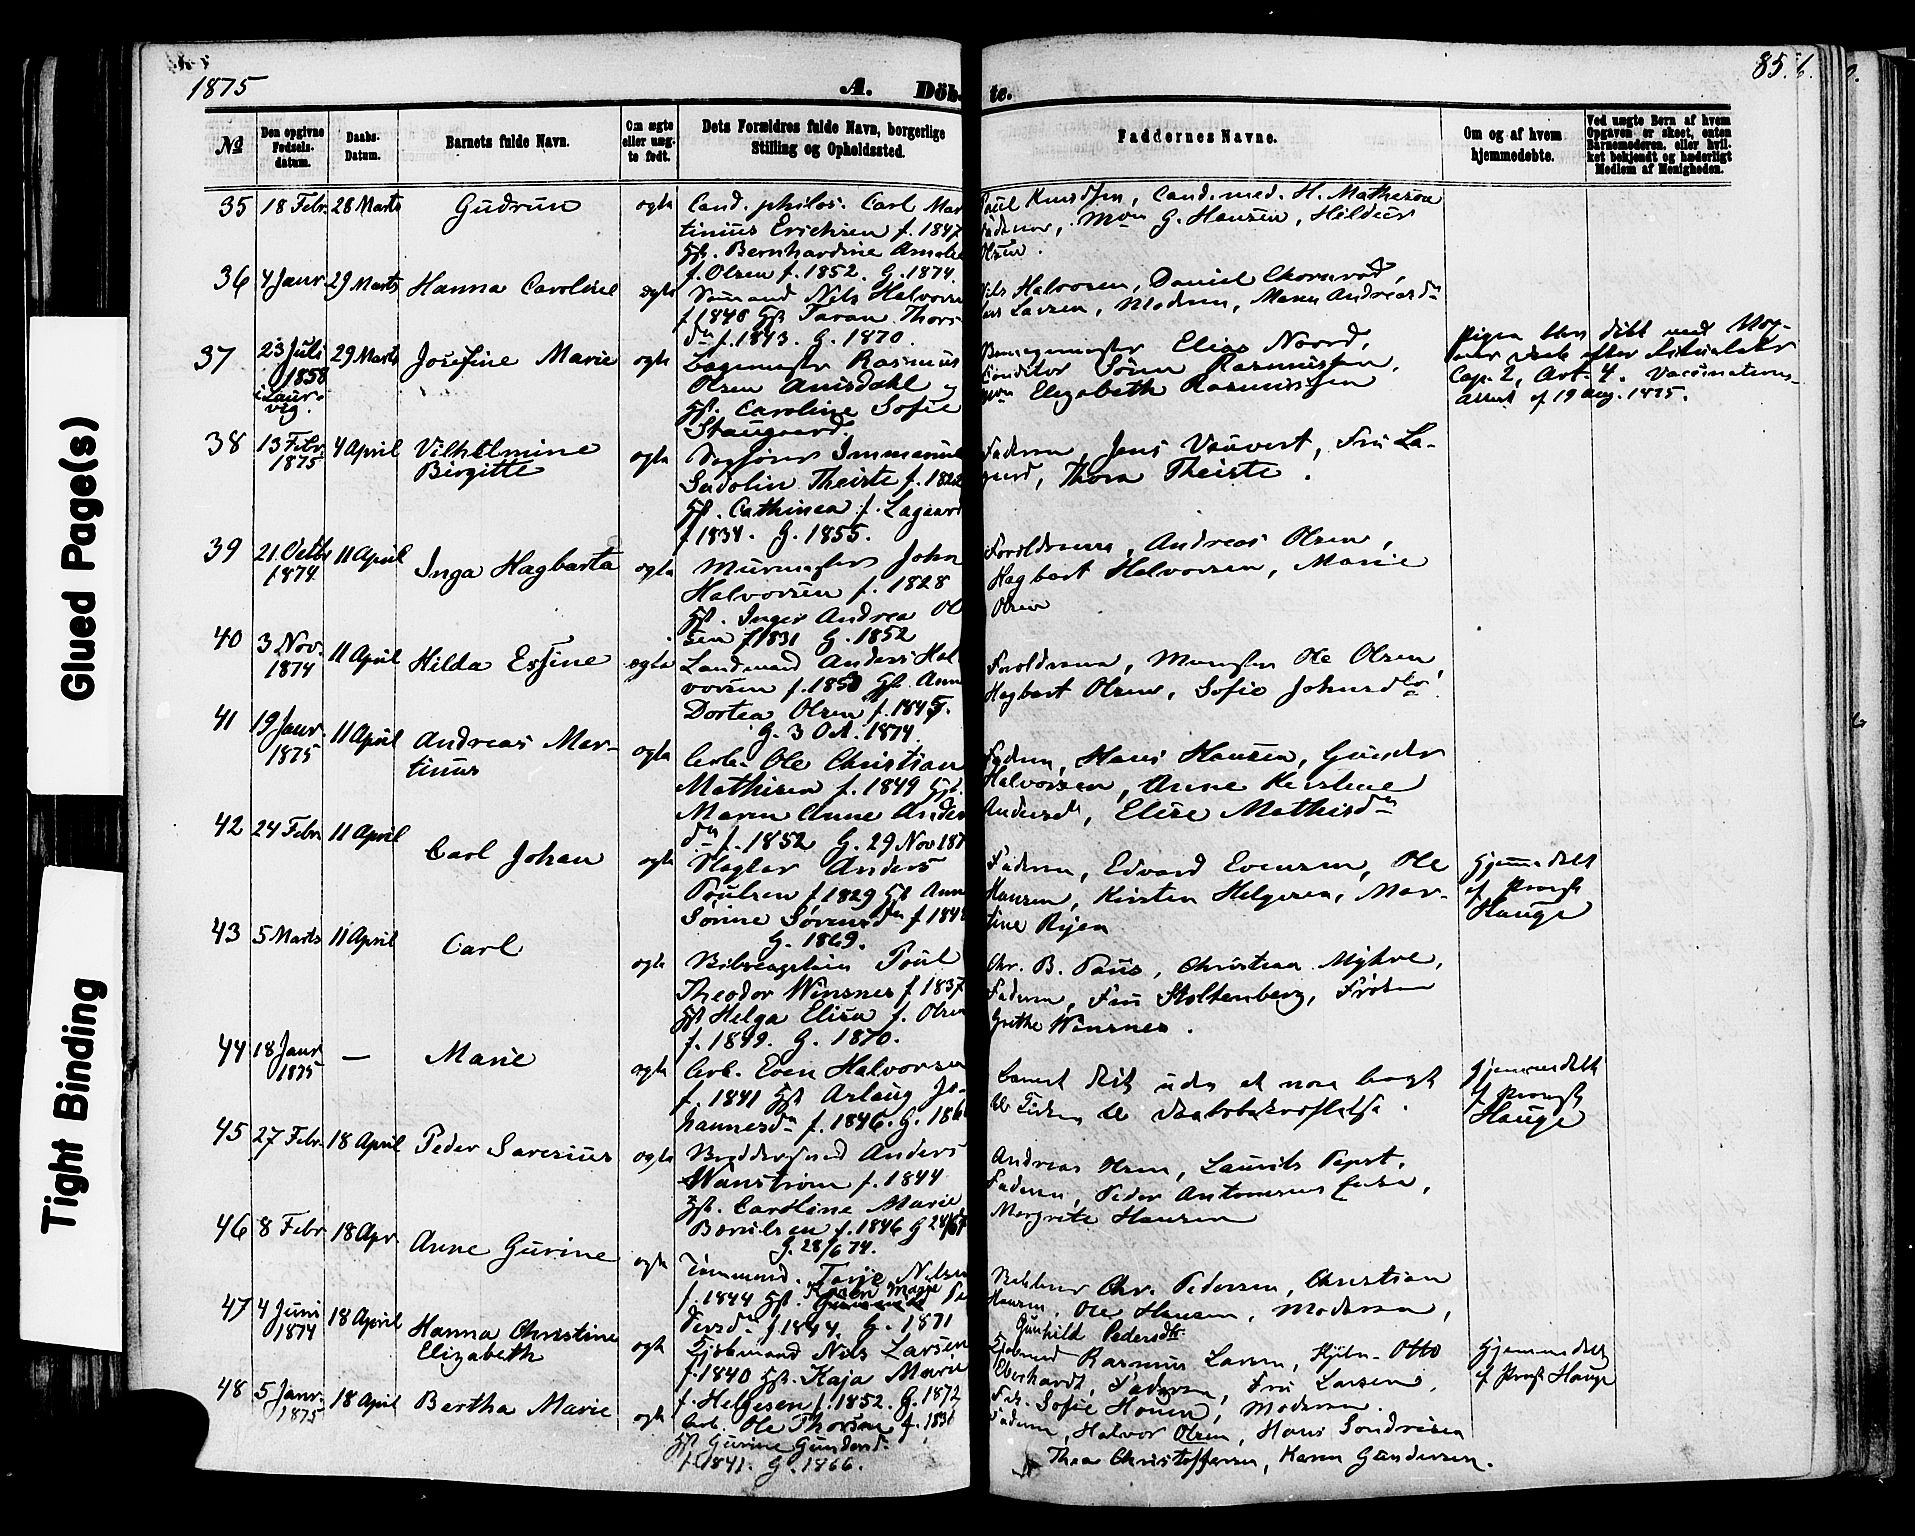 1875
A. Döb- te.
85.
Glued Page(s)
Tight Binding
No
Den opgivne Fødsels-datum.
Daabs-Datum.
Barnets fulde Navn.
Om ægte eller uægte født.
Dets Forældres fulde Navn, borgerlige Stilling og Opholdssted.
Faddernes Navne.
Om og af hvem hjemmedøbte.
Ved uægte Børn af hvem Opgaven er skeet, enten Barnemoderen, eller hvilket bekjendt og hæderligt Medlem af Menigheden.
35 18 Febr. 28 Marts Gudrun ægte
Cand. philos. Carl Mar
tinius Erichsen f. 1847
Bernhardine
f. Olsen f. 1852. G. 1874.
Paul Knudsen, Cand. med. H. Mathesen
G. Hansen, Hildur
Olsen.
36 4 Janr. 29 Marts Hanna Caroline ægte
Sømand Nils Halvorsen
f 1840 Taran Thors-
dr f. 1843. G. 1870.
Nils Halvorsen, Daniel
Larsen, Modren, Maren Andreasdr
37 23 Juli 1858 i Laurvig. 29 Marts Josefine Marie ægte
Bagermester Rasmus
Olsen Amsdahl og
Caroline Sofie
Staugaard.
Elias Noord,
Conditor Sören Rasmussen,
Elizabeth Rasmussen
Pigen blev døbt med
efter Ritualets
Cap. 2, Art. 4. Vaccinations-
Attest af 19 Aug. 1875.
38 13 Febr. 1875 4 April Vilhelmine
Birgitte ægte
Immanuel
Sadolin Theiste f. 1822
Cathinca f. Lagaard
f 1834. G. 1855.
Fadren, Jens Vauvert, Fru La-
gaard, Thora Theiste.
39 21. Octbr 1874 11 April Inga Hagbarta ægte
Murmester John
Halvorsen f. 1828
Inger Andrea Ol
sen f 1831 G. 1852
Forældrene, Andreas Olsen,
Hagbart Halvorsen, Marie
Olsen
40 3 Nov. 1874 11 April Hilda Essine ægte
Landmand Anders Hal
vorsen f. 1850 Anne
Dortea Olsen f. 1845
G. 3 Oct. 1874.
Forældrene, Ole Olsen,
Hagbart Olsen, Sofie Johnsdtr
41 19 Janr. 1875 11 April Andreas Mar-
tinus ægte
Arb. Ole Christian
Mathisen f. 1849
Maren Anne Anders
dr f. 1852 G. 29 Nov 187
Fadren, Hans Hansen, Gunder
Halvorsen, Anne Kirstine
Andersd, Elise Mathisdr
42 24 Febr. 11 April Carl Johan ægte
Slagter Anders
Poulsen f 1829 Anne
Sörine Sörensdr f 184
G. 1869.
Fadren, Edvard Evensen, Ole
Hansen, Kirsten Helgesen, Mar-
tine Rijen
Hjemmedøbt
af Provst
Hauge
43 5 Marts 11 April Carl ægte
Poul
Theodor Winsnes f 1837
Helga Elisa f. Olsen
f. 1849. G. 1870.
Chr. B. Paus, Christian Myhre,
Fadren, Fru Stoltenberg, Frøken
Grethe Winsnes.
44 18 Janr 1875 — Marie ægte
Arb. Even Halvorsen
f. 1841 Aslaug Jo-
hannesdr f. 1846. G. 186
Barnet
til Daabsbekræftelse.
Hjemmedøbt
af Provst
Hauge
45 27 Febr. 18 April Peder Severius ægte
Anders
Wanström f. 1844
Caroline Marie
f. 1846 G 28/6 7
G. 28/6 74.
Andreas Olsen, Laurits
Fadren, Peder Antonsens
Margrete Hansen
46 8 Febr 18 Apr Anne Gurine ægte
Tømmermd. Tarje Nilsen
f. 1844 Karen Marie Pe
dersdr f 1844. G. 1871
Chr. Pedersen, Christian
Hansen, Ole Hansen, Moderen,
Gunhild Pedersdtr
47 4 Juni 1874 18 April Hanna Christine
Elizabeth ægte
Nils Larsen
f. 1840 Kaja Marie
f. Helgesen f. 1852. G. 1872
Rasmus Larsen, Otto
Eberhardt, Fadren, Fru Larsen,
Sofie Houen, Moderen.
Hjemmedøbt
af Provst Hauge
48 5 Janr. 1875 18 April Bertha Marie ægte
Arb. Ole Thorsen f. 1836
Gurine Gundersd.
f. 1841. G. 1866.
Fadren, Halvor Olsen, Hans Sondresen
Thea Christoffersen, Karen Gundersen.